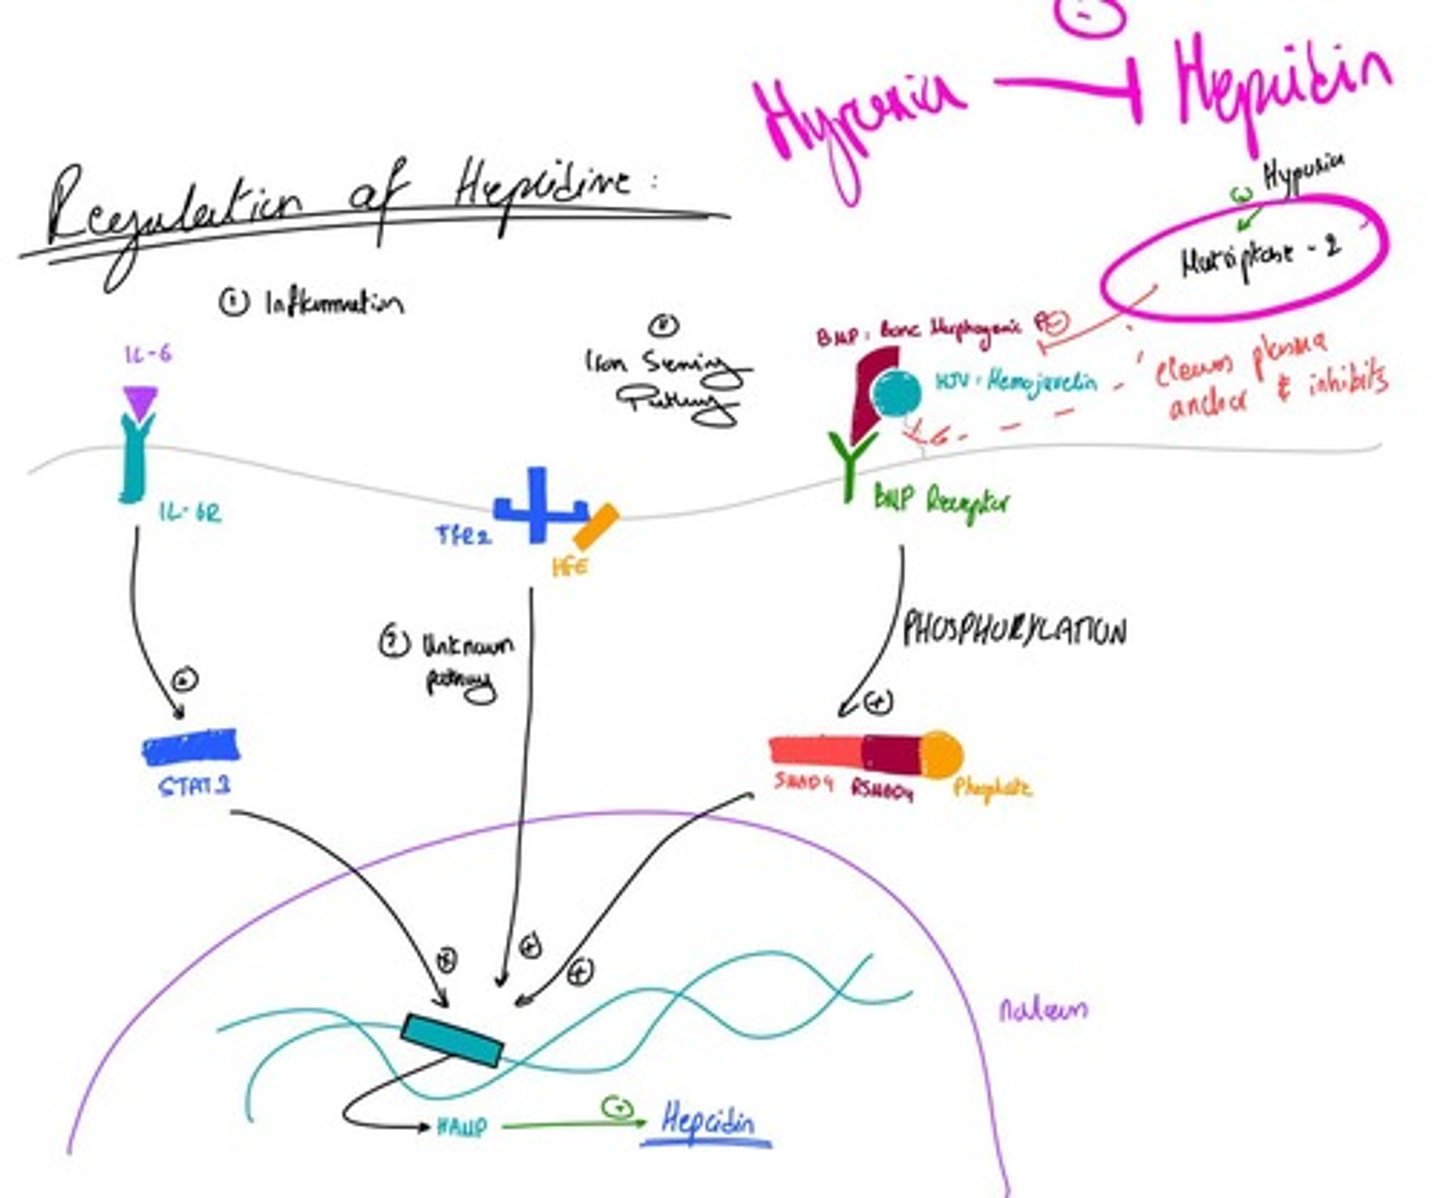 Hypoxia ⊣ Hepcidin
-
Regulation of Hepcidine :
Hypoxia
Matriptase - 2
① Inflammation
IL-6
IL-6R
②
Iron Sensing
Pathway
BMP : Bone Morphogenic P
HJV : Hemojuvelin
cleaves plasma
anchor & inhibits
BMP Receptor
TFR2
HFE
? Unknown
pathway
PHOSPHORYLATION
+
+
STAT3
SMAD4 RSMAD4 Phosphate
+
+
+
Nucleus
HAMP
+
Hepcidin